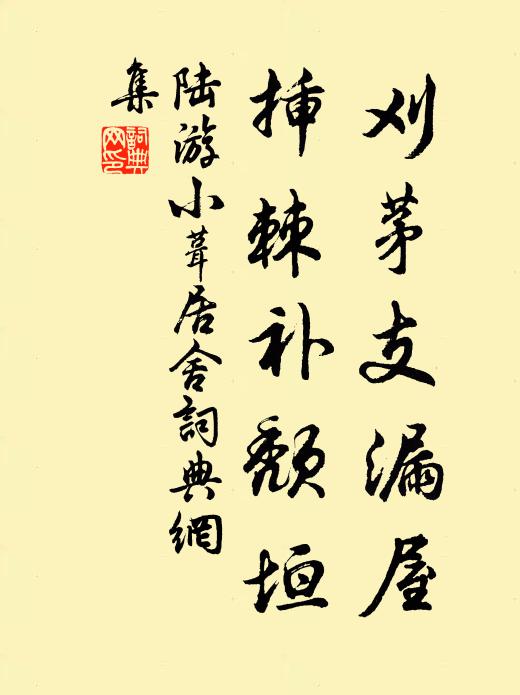 刈茅支漏屋
挿棘补颓垣
陆游小葺居舍詞典網
集
詞典网印